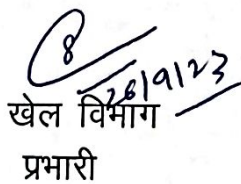 26/9/23
खेल विभाग
प्रभारी